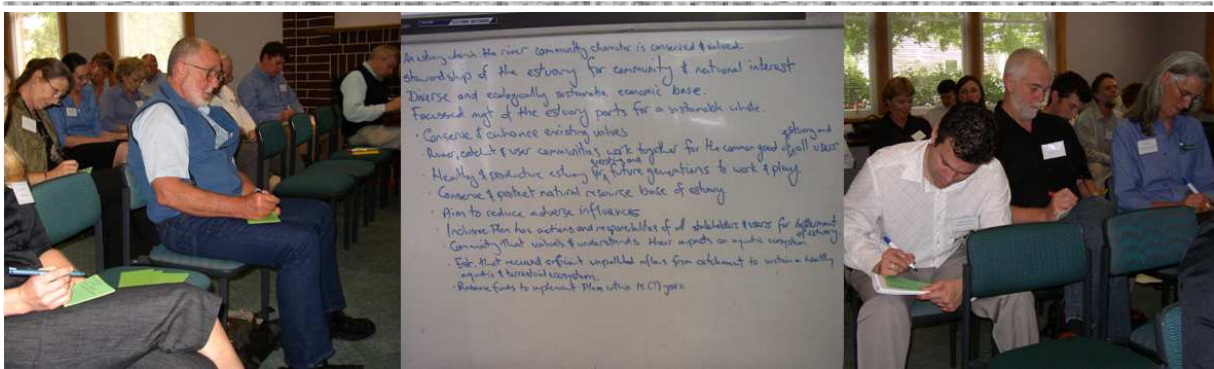 An estuary where the river community character is conserved & valued.
stewardship of the estuary for community & national interest
Diverse and ecologically sustainable economic base.
Focussed mgt of the estuary parts for a sustainable whole.
· Conserve & enhance existing values
estuary and
· River, catchmt & user communities work together for the common good of all users
existing and
· Healthy & productive estuary for future generations to work & play.
· Conserve & protect natural resource base of estuary
· Aim to reduce adverse influences
Inclusive Plan has actions and responsibilities of all stakeholders & users for betterment
of estuary
· Community that values & understands their impacts on aquatic ecosystem
· Est. that received sufficient unpolluted inflows from catchment to sustain a healthy
aquatic & terrestrial ecosystem.
· Resource funds to implement Plan within 15 (?) years